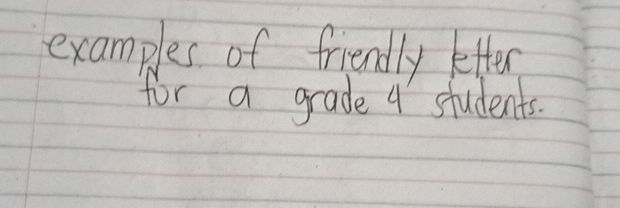 examples of friendly letter
for a grade 4 students.